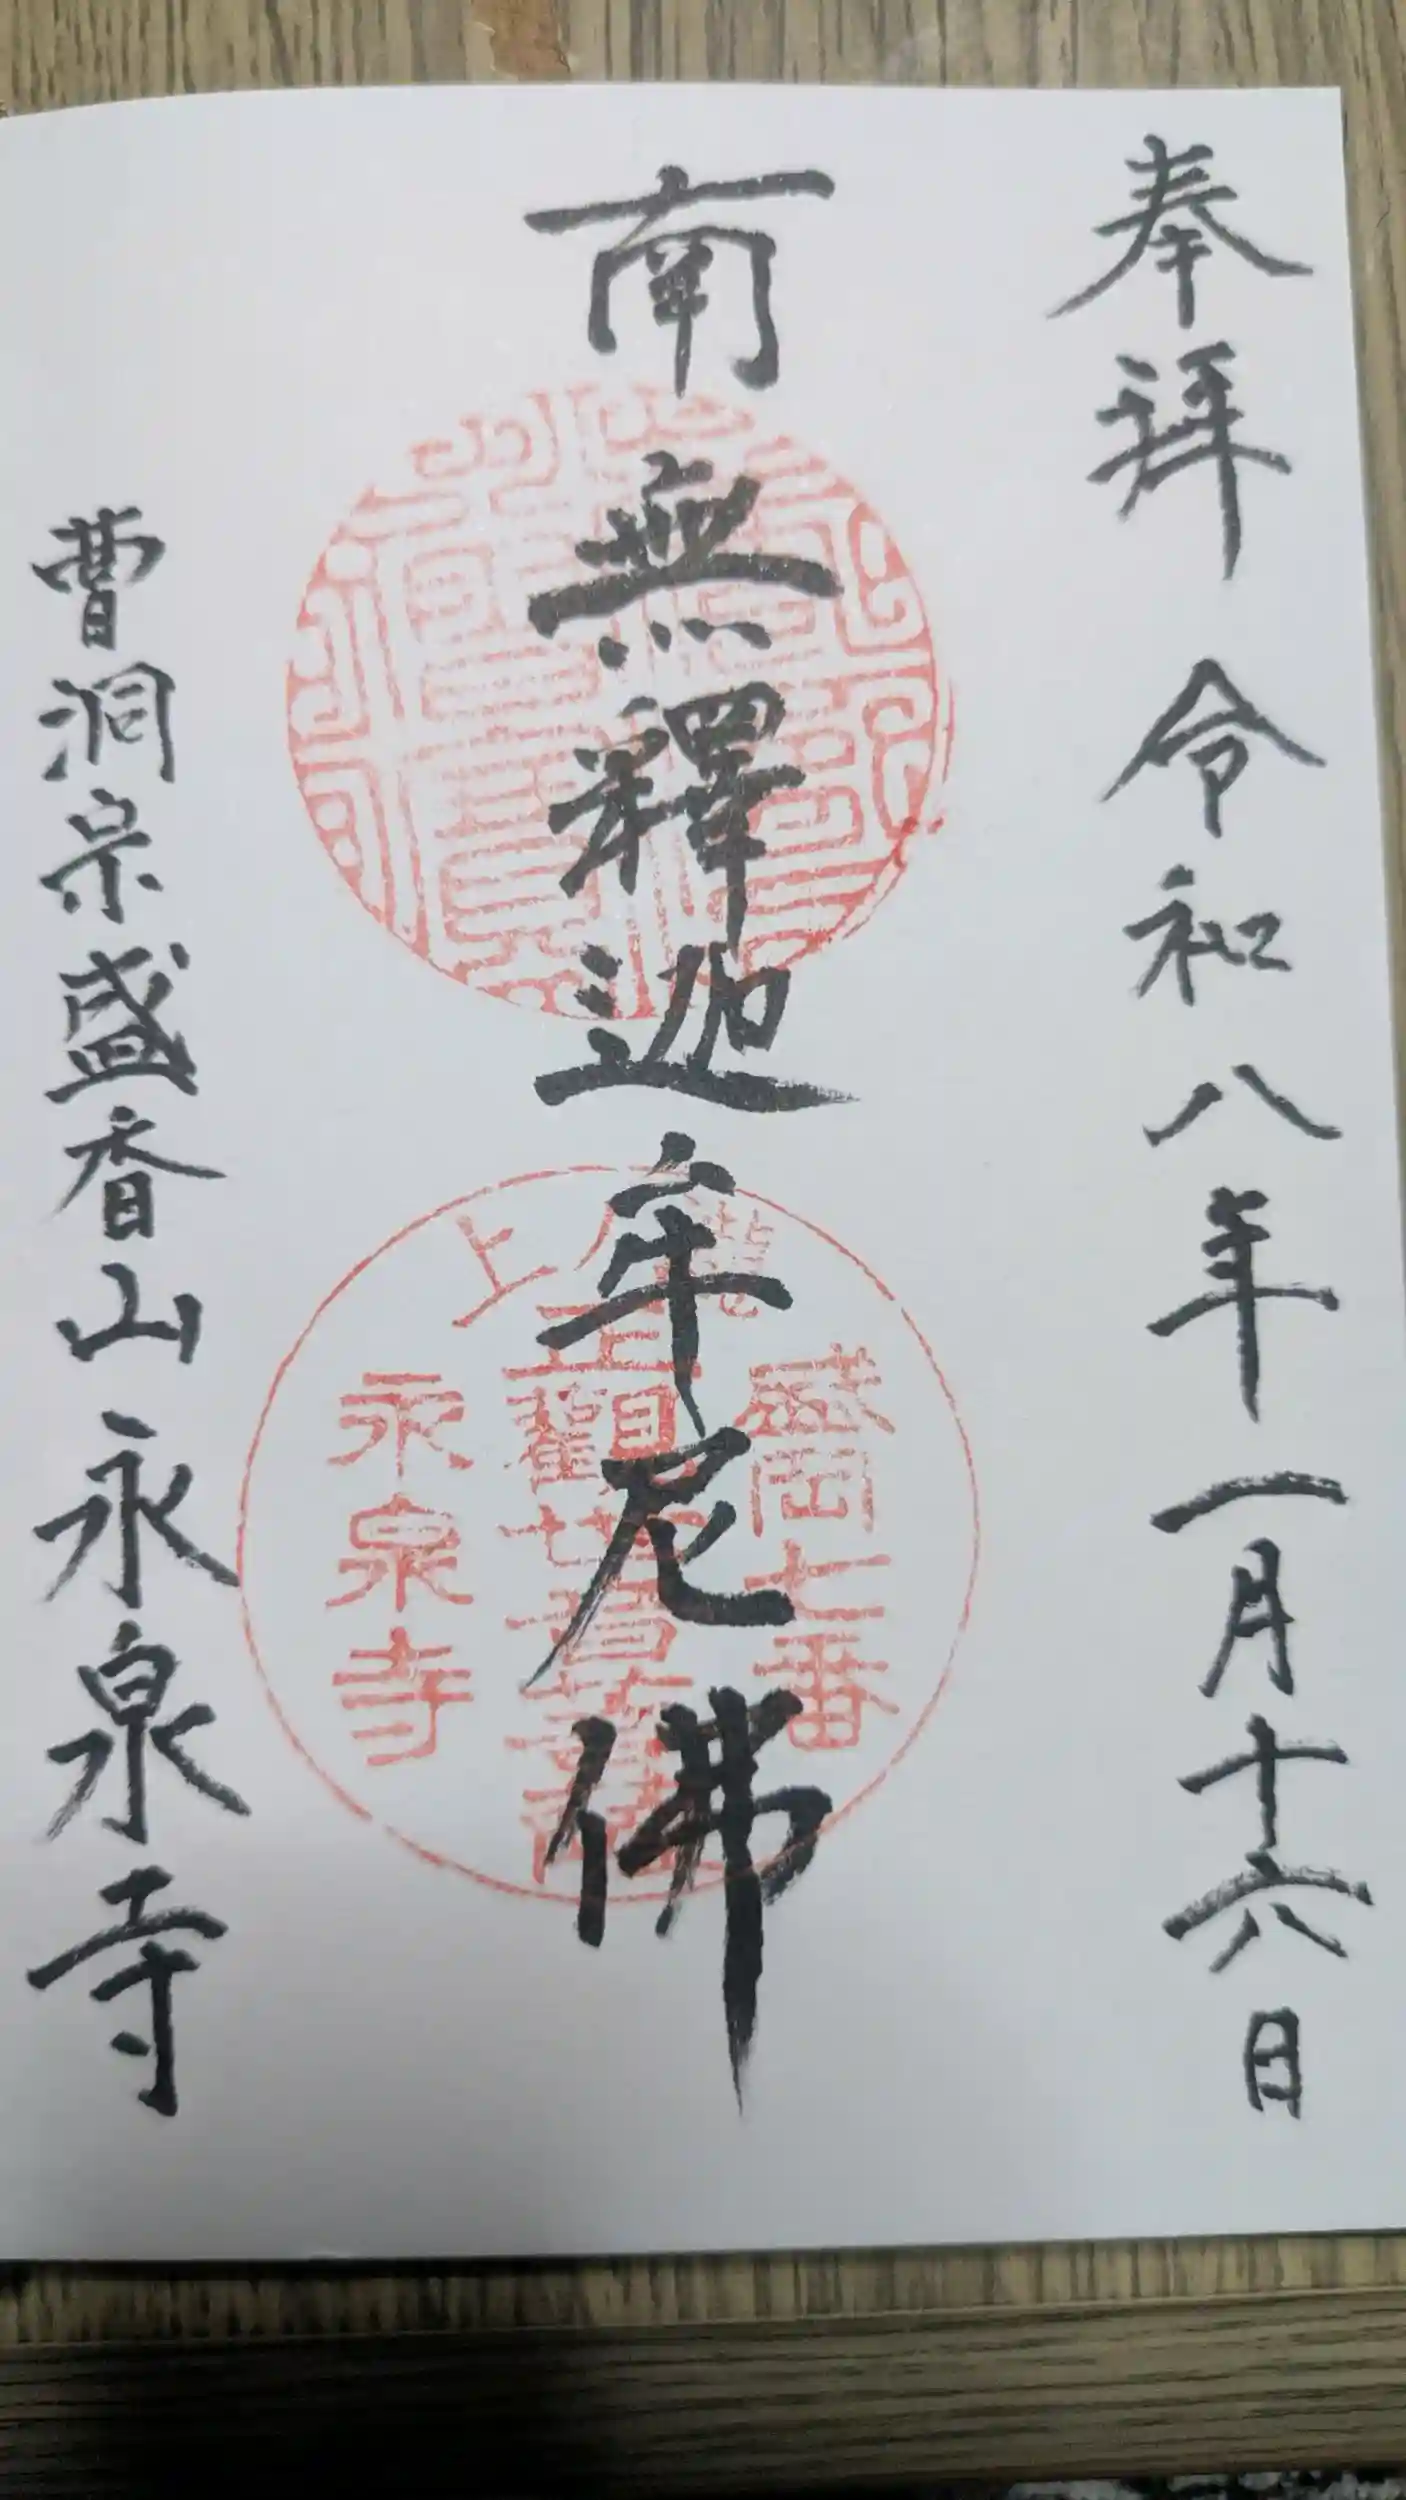 奉拜 令和八年一月十六日
南無釋迦牟尼佛
盛岡七番
聖觀世音菩薩
永泉寺
曹洞宗盛香山永泉寺